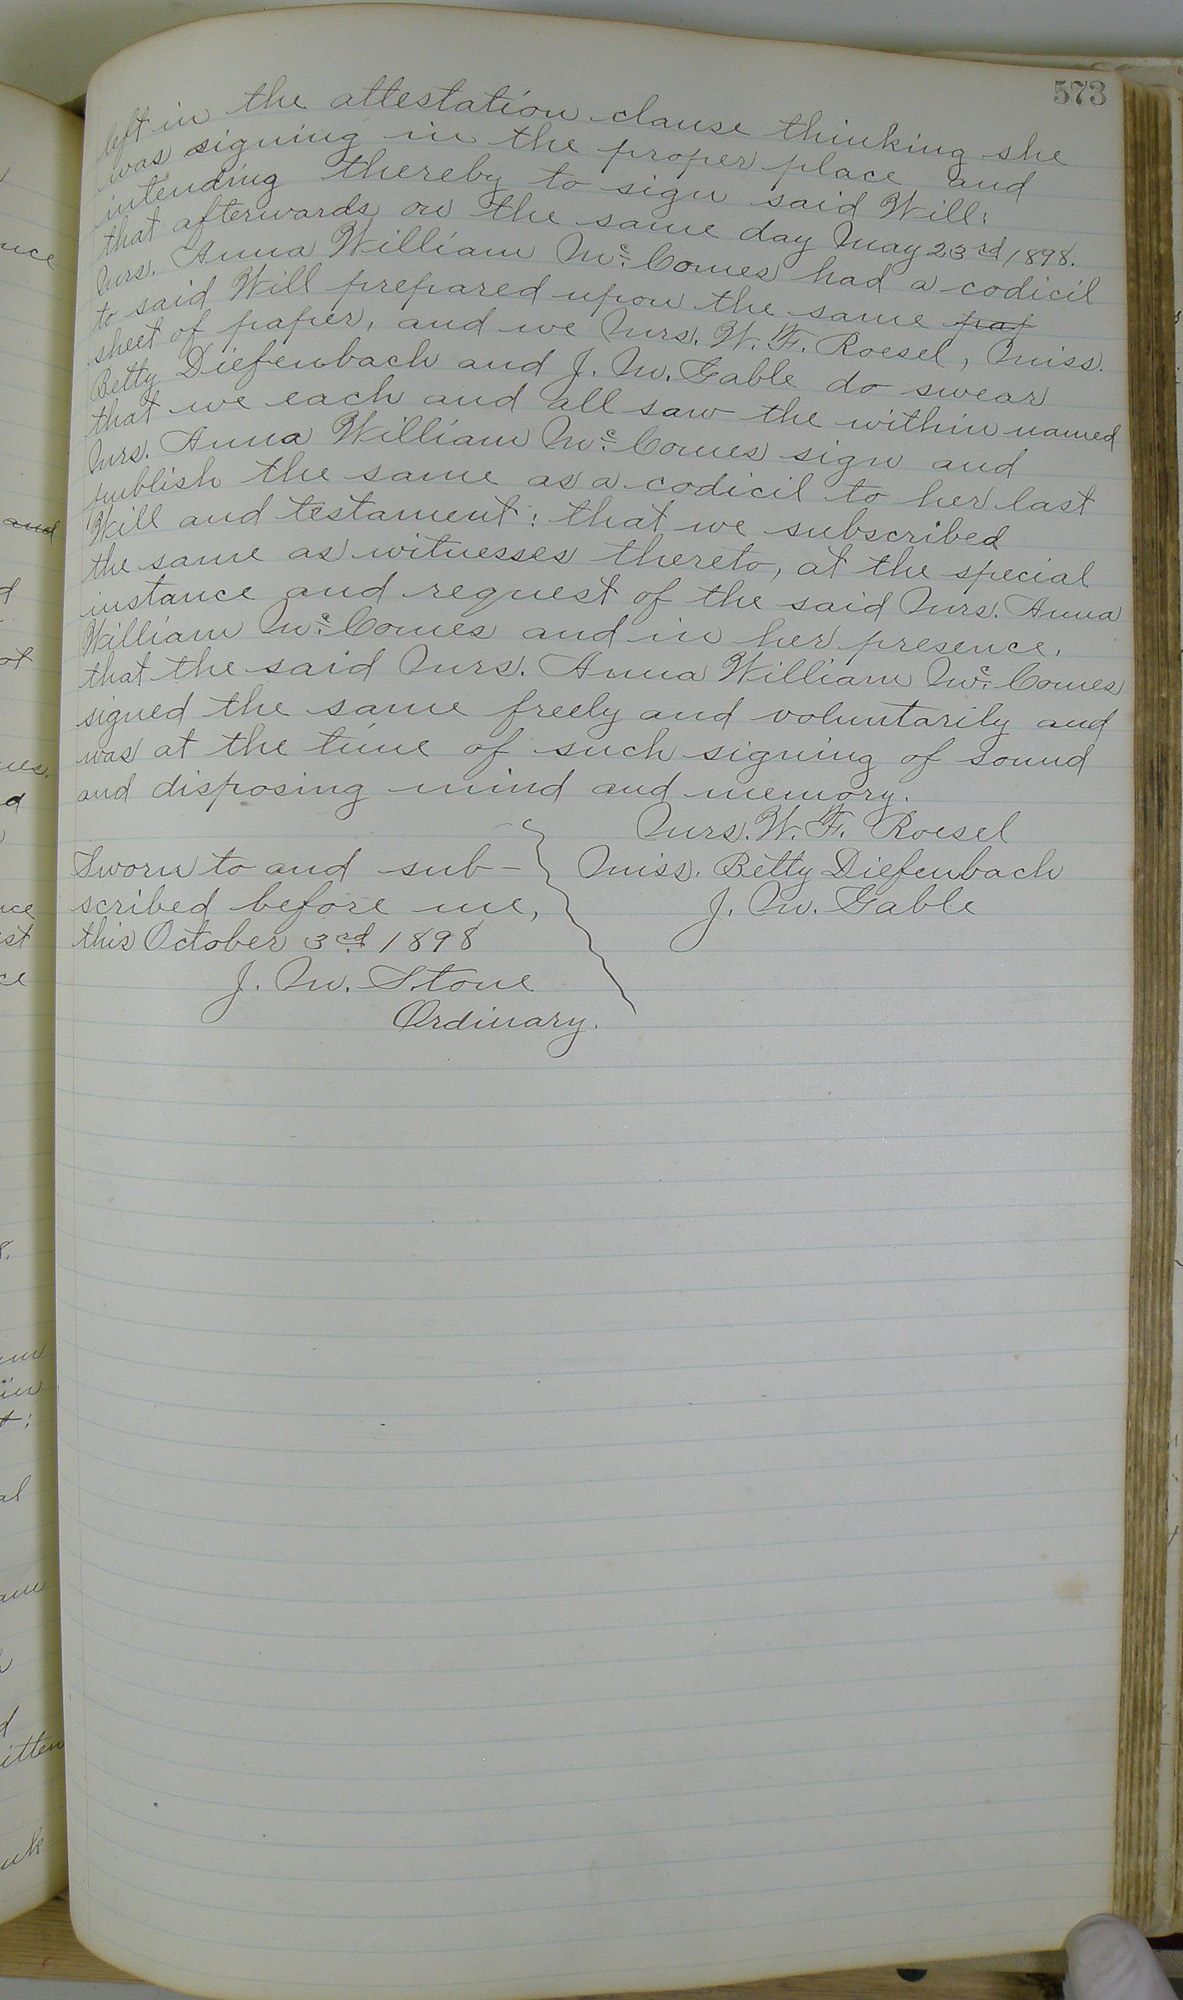 573
left in the attestation clause thinking she
was signing in the proper place and
intending thereby to sign said Will:
that afterwards on the same day May 23rd 1898.
Mrs. Anna William Mc. Comes had a codicil
to said Will prepared upon the same pap
sheet of paper, and we Mrs. W. F. Roesel, Miss.
Betty Diefenbach and J. M. Gable do swear
that we each and all saw the within named
Mrs. Anna William Mc. Comes sign and
publish the same as a codicil to her last
Will and testament: that we subscribed
the same as witnesses thereto, at the special
instance and request of the said Mrs. Anna
William Mc. Comes and in her presence.
that the said Mrs. Anna William Mc. Comes
signed the same freely and voluntarily and
was at the time of such signing of sound
and disposing mind and memory.
Mrs. W. F. Roesel
Sworn to and sub- Miss. Betty Diefenbach
scribed before me, J. M. Gable
this October 3rd 1898
J. M. Stone
Ordinary.